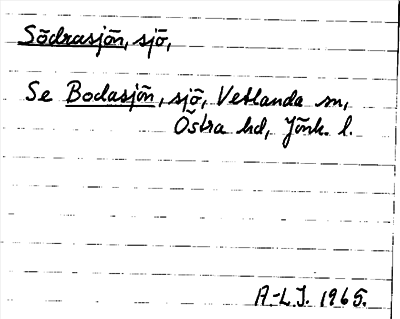 Södrasjön, sjö,
Se Bodasjön, sjö, Vetlanda sn,
Östra hd, Jönk. l.
A.-L.J. 1965.